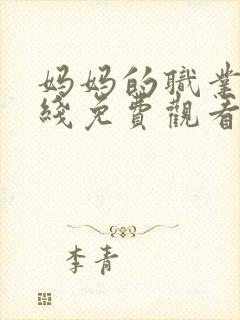 妈妈的職業
綫免費觀看
李青